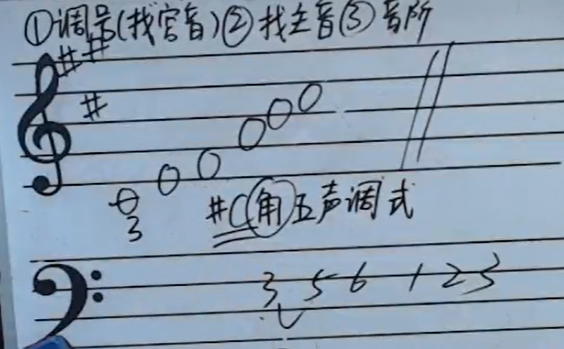 ①调号(找宫音)②找主音③音阶
3
#C(角)五声调式
3 5 6 1 2 3